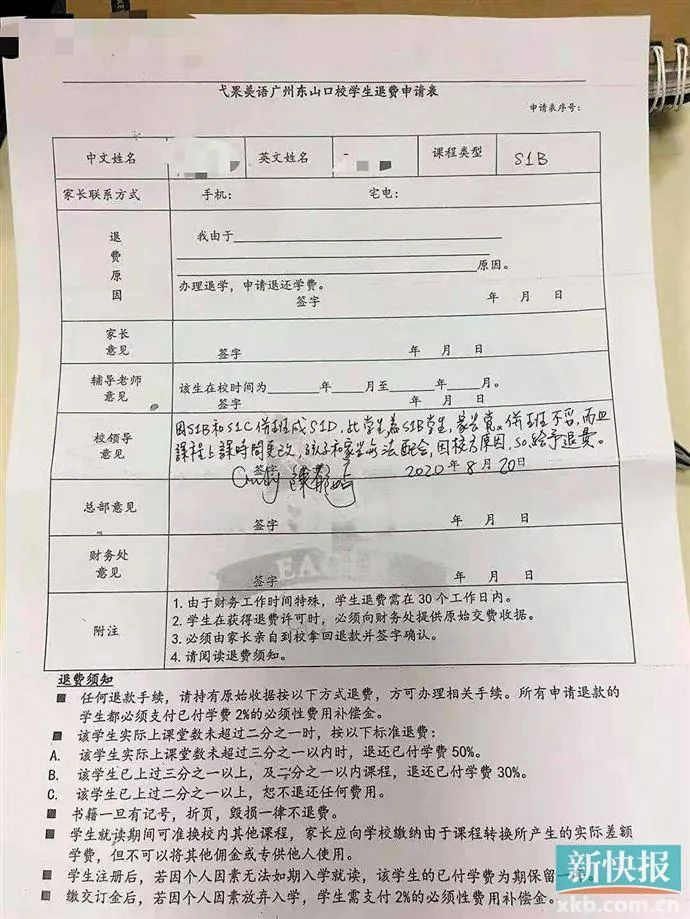 弋果美语广州东山口校学生退费申请表
申请表序号:
中文姓名 英文姓名 课程类型 S1B
家长联系方式 手机: 宅电:
退费原因
我由于
原因。
办理退学，申请退还学费。
签字 年 月 日
家长意见
签字 年 月 日
辅导老师意见
该生在校时间为 年 月至 年 月。
签字 年 月 日
校领导意见
因S1B和S1C併班成S1D,此学生為S1B学生,併班不宜,而且
課程上課時間更改,孩子和家长无法配合,因校方原因,so给予退費。
签字 2020年8月20日
总部意见
签字 年 月 日
财务处意见
签字 年 月 日
附注
1. 由于财务工作时间特殊，学生退费需在30个工作日内。
2. 学生在获得退费许可时，必须向财务处提供原始交费收据。
3. 必须由家长亲自到校拿回退款并签字确认。
4. 请阅读退费须知。
退费须知
■ 任何退款手续，请持有原始收据按以下方式退费，方可办理相关手续。所有申请退款的
学生都必须支付已付学费2%的必须性费用补偿金。
■ 该学生实际上课堂数未超过二分之一时，按以下标准退费:
A. 该学生实际上课堂数未超过三分之一以内时，退还已付学费50%。
B. 该学生已上过三分之一以上，及二分之一以内课程，退还已付学费30%。
C. 该学生已上过二分之一以上，恕不退还任何费用。
■ 书籍一旦有记号，折页，毁损一律不退费。
■ 学生就读期间可准换校内其他课程，家长应向学校缴纳由于课程转换所产生的实际差额
学费，但不可以将其他佣金或专供他人使用。
■ 学生注册后，若因个人因素无法如期入学就读，该学生的已付学费为期保留一年。
■ 缴交订金后，若因个人因素放弃入学，学生需支付2%的必须性费用补偿金。
新快报
xkb.com.cn